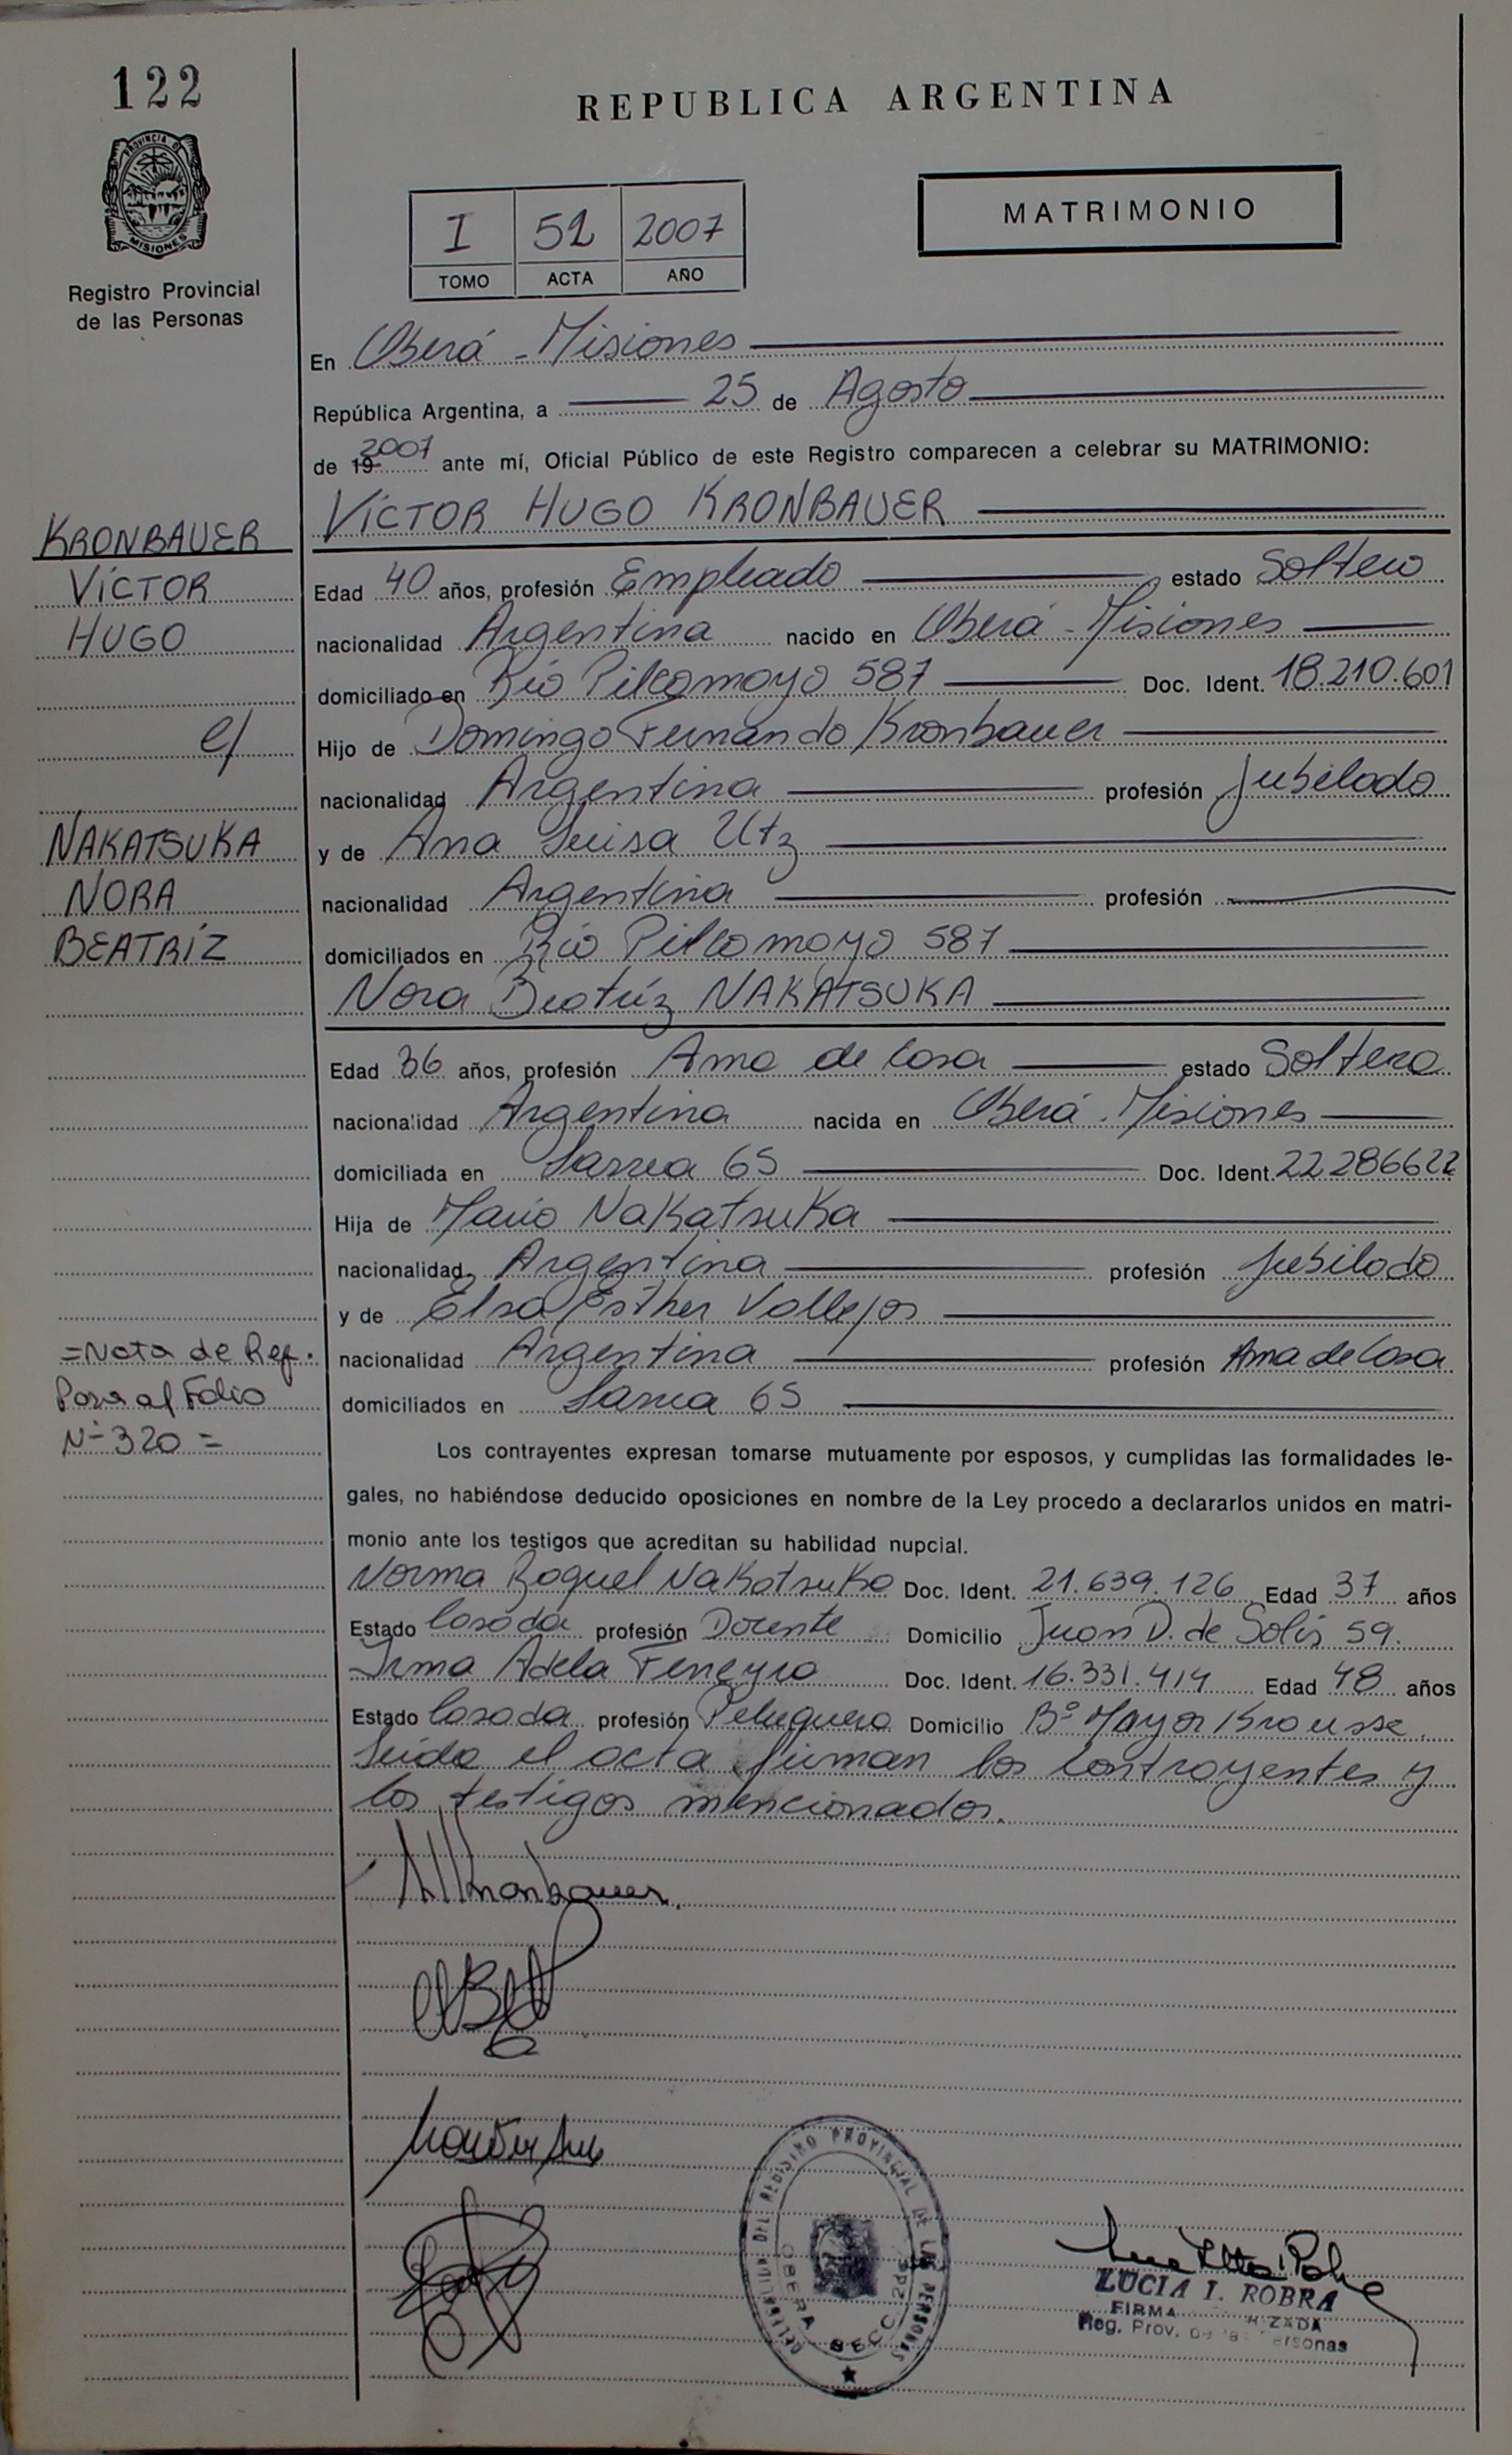 122
REPUBLICA ARGENTINA
PROVINCIA DE
MISIONES
Registro Provincial
de las Personas
I 52 2007
TOMO ACTA AÑO
MATRIMONIO
En Oberá - Misiones
República Argentina, a 25 de Agosto
de 19 2007 ante mí, Oficial Público de este Registro comparecen a celebrar su MATRIMONIO:
VÍCTOR HUGO KRONBAUER
KRONBAUER
VÍCTOR
HUGO
c/
NAKATSUKA
NORA
BEATRÍZ
Edad 40 años, profesión Empleado estado Soltero
nacionalidad Argentina nacido en Oberá - Misiones
domiciliado en Río Pilcomayo 587 Doc. Ident. 18.210.601
Hijo de Domingo Fernando Kronbauer
nacionalidad Argentina profesión Jubilado
y de Ana Luisa Utz
nacionalidad Argentina profesión
domiciliados en Río Pilcomayo 587
Nora Beatríz NAKATSUKA
Edad 36 años, profesión Ama de Casa estado Soltera
nacionalidad Argentina nacida en Oberá - Misiones
domiciliada en Larrea 65 Doc. Ident. 22286622
Hija de Mario Nakatsuka
nacionalidad Argentina profesión Jubilado
y de Elsa Esther Vallejos
nacionalidad Argentina profesión Ama de Casa
domiciliados en Larrea 65
=Nota de Ref.
Pasa al Folio
Nº 320 =
Los contrayentes expresan tomarse mutuamente por esposos, y cumplidas las formalidades le-
gales, no habiéndose deducido oposiciones en nombre de la Ley procedo a declararlos unidos en matri-
monio ante los testigos que acreditan su habilidad nupcial.
Norma Raquel Nakatsuka Doc. Ident. 21.639.126 Edad 37 años
Estado Casada profesión Docente Domicilio Juan D. de Solís 59.
Irma Adela Ferreyra Doc. Ident. 16.331.414 Edad 48 años
Estado Casada profesión Peluquera Domicilio Bº Mayor Krousse.
Leída el acta firman los contrayentes y
los testigos mencionados.
DEL REGISTRO PROVINCIAL DE LAS PERSONAS
OBERA SECC. 2da
LUCIA I. ROBRA
FIRMA
Reg. Prov. de las Personas